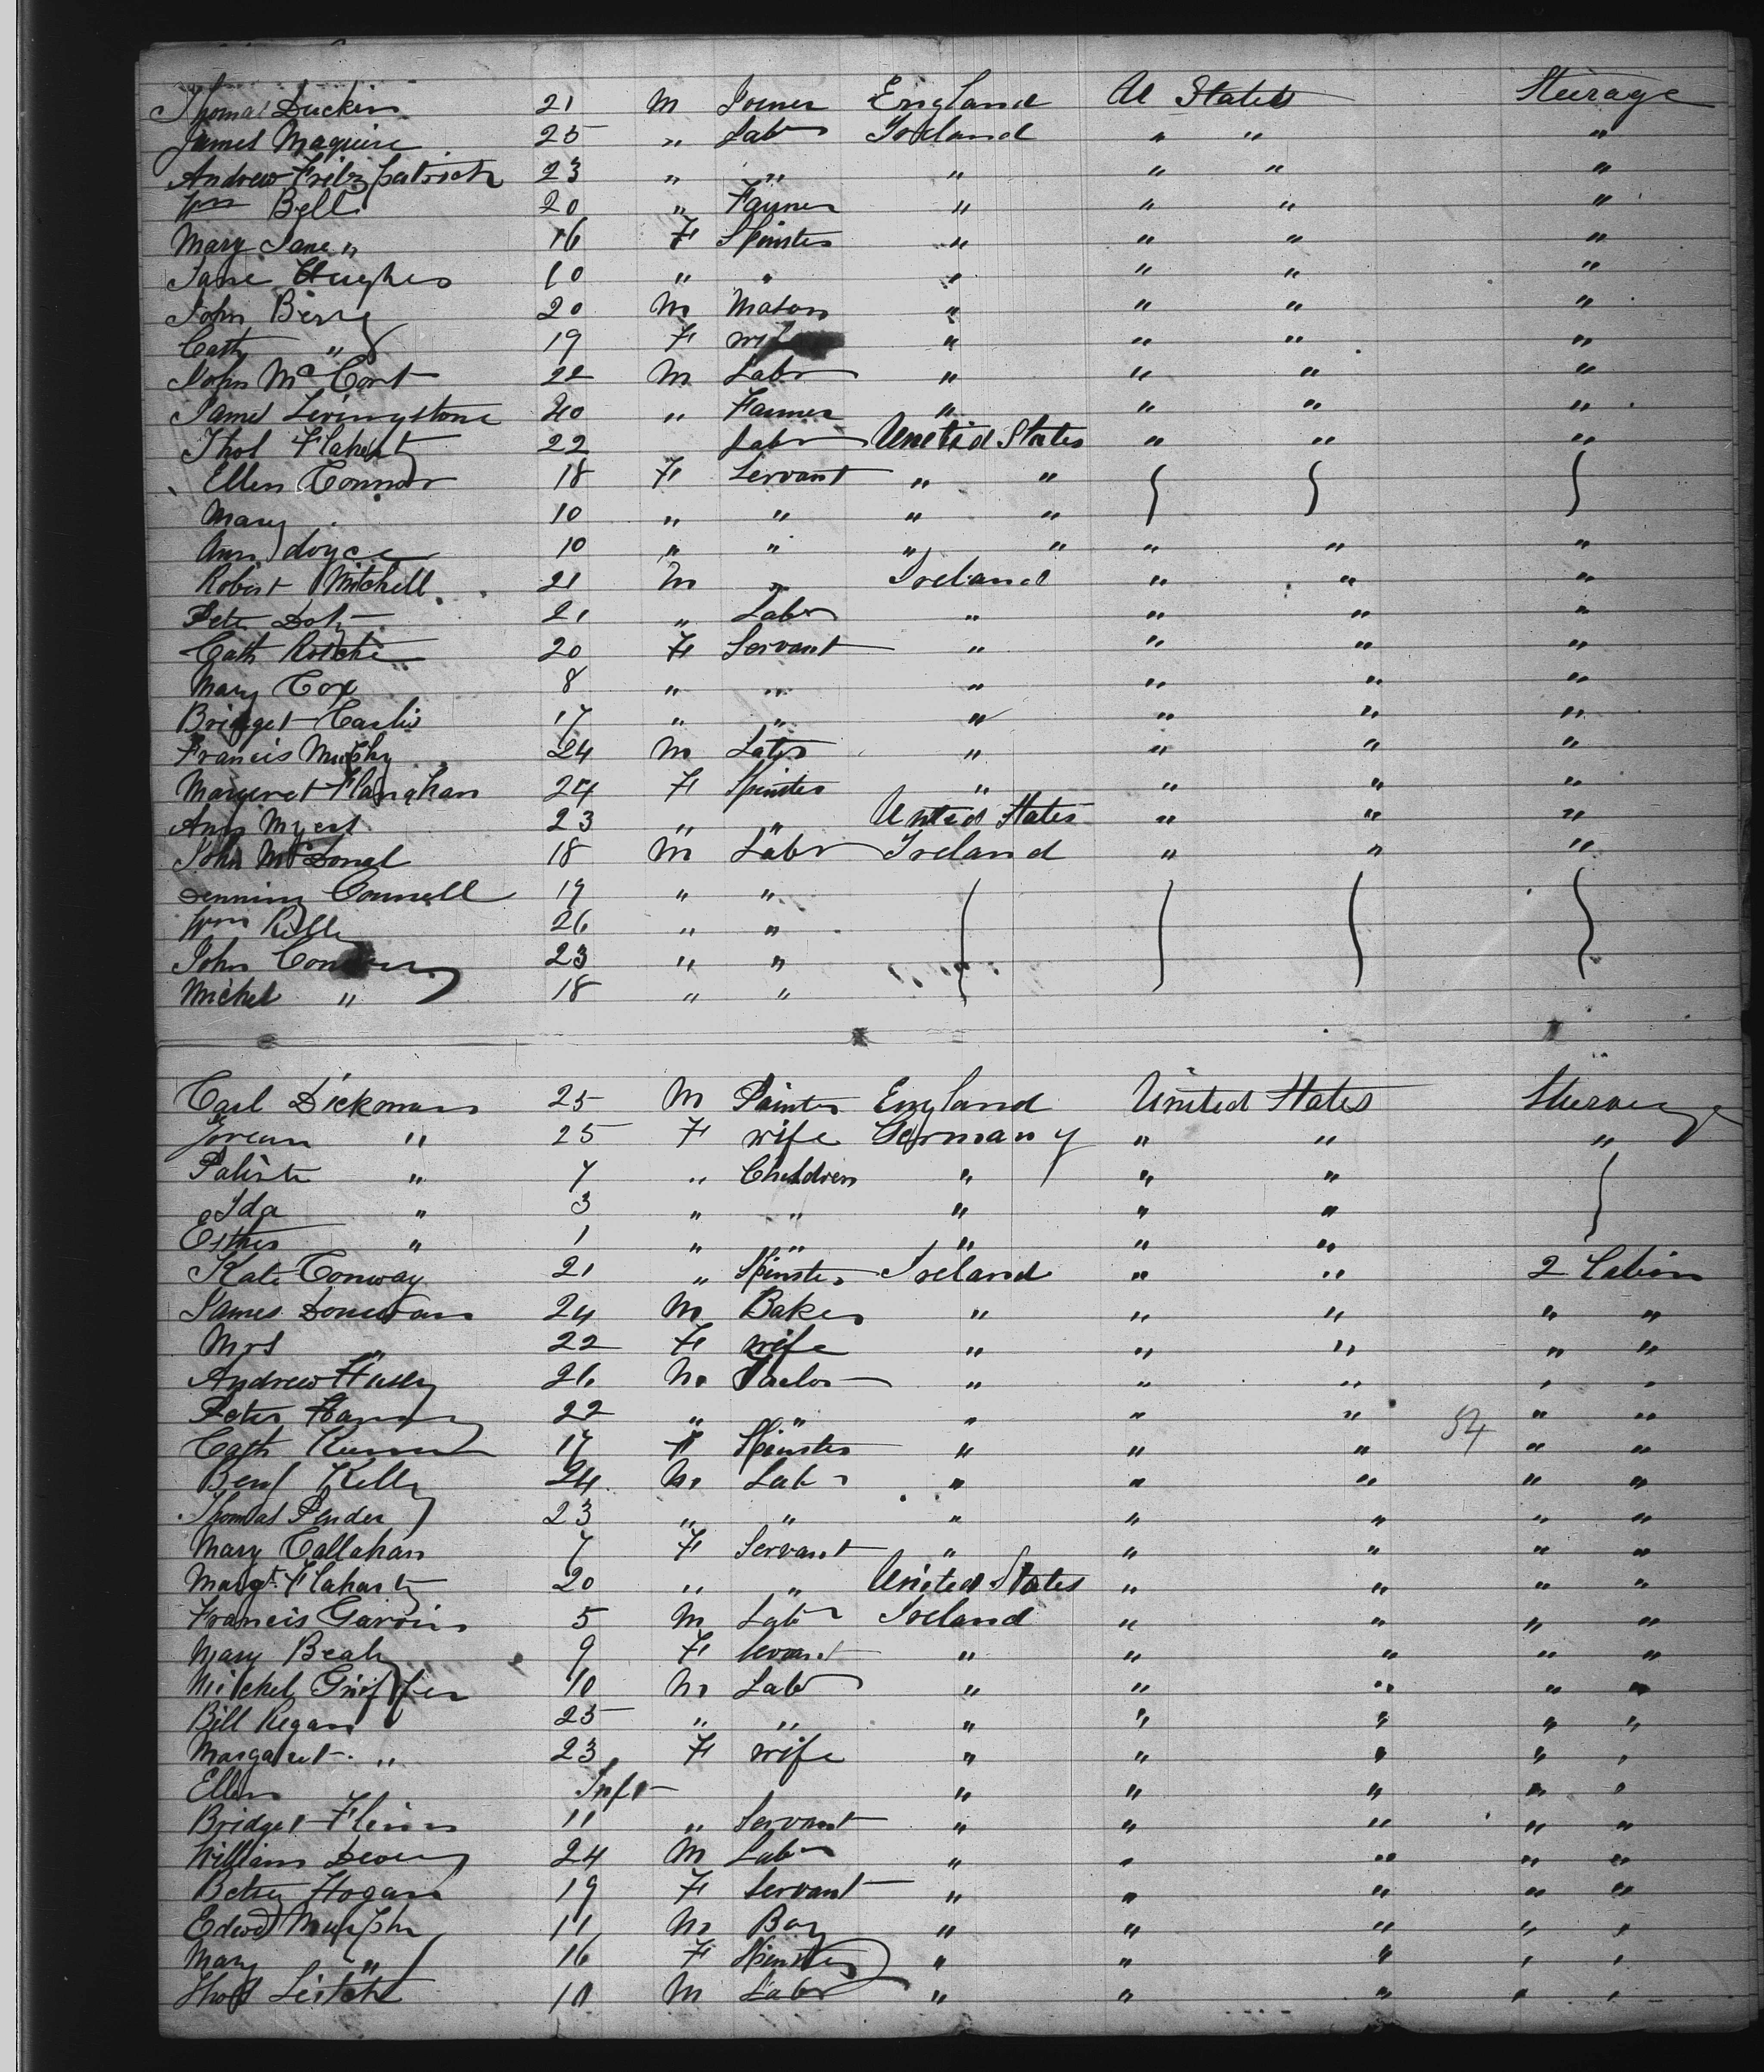 Thomas Duckin 21 M Joiner England U States Steerage
James Maguire 25 " Labr Ireland " " "
Andrew Fitzpatrick 23 " " " " " "
Wm Bell 20 " Farmer " " " "
Mary Jane " 16 F Spinster " " " "
Jane Hughes 10 " " " " " "
John Berry 20 M Mason " " " "
Cath " 19 F wife " " " "
John McCort 22 M Labr " " " "
James Levingstone 40 " Farmer " " " "
Thos Flaherty 22 Labr United States " " "
Ellen Connor 18 F Servant " "
Mary 10 " " " "
Ann Joyce 10 " " " " " " "
Robert Mitchell 21 M " Ireland " " "
Peter Doty 21 " Labr " " " "
Cath 20 F Servant " " " "
Mary Cox 8 " " " " " "
Bridget 17 " " " " " "
Francis Murphy 24 M Labr " " " "
Margeret Flanghan 24 F Spinster " " " "
Ann Myers 23 " " United States " " "
John McDonal 18 M Labr Ireland " " "
Connell 19 " "
Wm Kelly 26 " "
John 23 " "
Michel " 18 " "
Carl Dickmann 25 M Painter England United States Steerage
" 25 F wife Germany " " "
" 7 " Children " " "
Ida " 3 " " " " "
Esther " 1 " " " " "
Kate Conway 21 " Spinster Ireland " " 2 Cabin
James Donovan 24 M Baker " " " " "
Mrs " 22 F wife " " " " "
Andrew 26 M Tailor " " " " "
Peter 22 " " " " " 54 " "
Cath 17 F Spinster " " " " "
Benj Kelly 24 M Labr " " " " "
Thomas Pender 23 " " " " " " "
Mary Callahan 7 F Servant " " " " "
Margt Flaharty 20 " " United States " " " "
Francis Garvin 5 M Labr Ireland " " " "
Mary 9 F Servant " " " " "
Mitchel 10 M Labr " " " " "
Bill Regan 25 " " " " " " "
Margaret " 23 F wife " " " " "
Ellen Inft " " " " "
Bridget Flinn 11 " Servant " " " " "
William 24 M Labr " " " " "
Betsy Hogan 19 F Servant " " " " "
Edwd Murphy 11 M Boy " " " " "
Mary " 16 F Spinster " " " " "
Thos Leitch 10 M Labr " " " " "